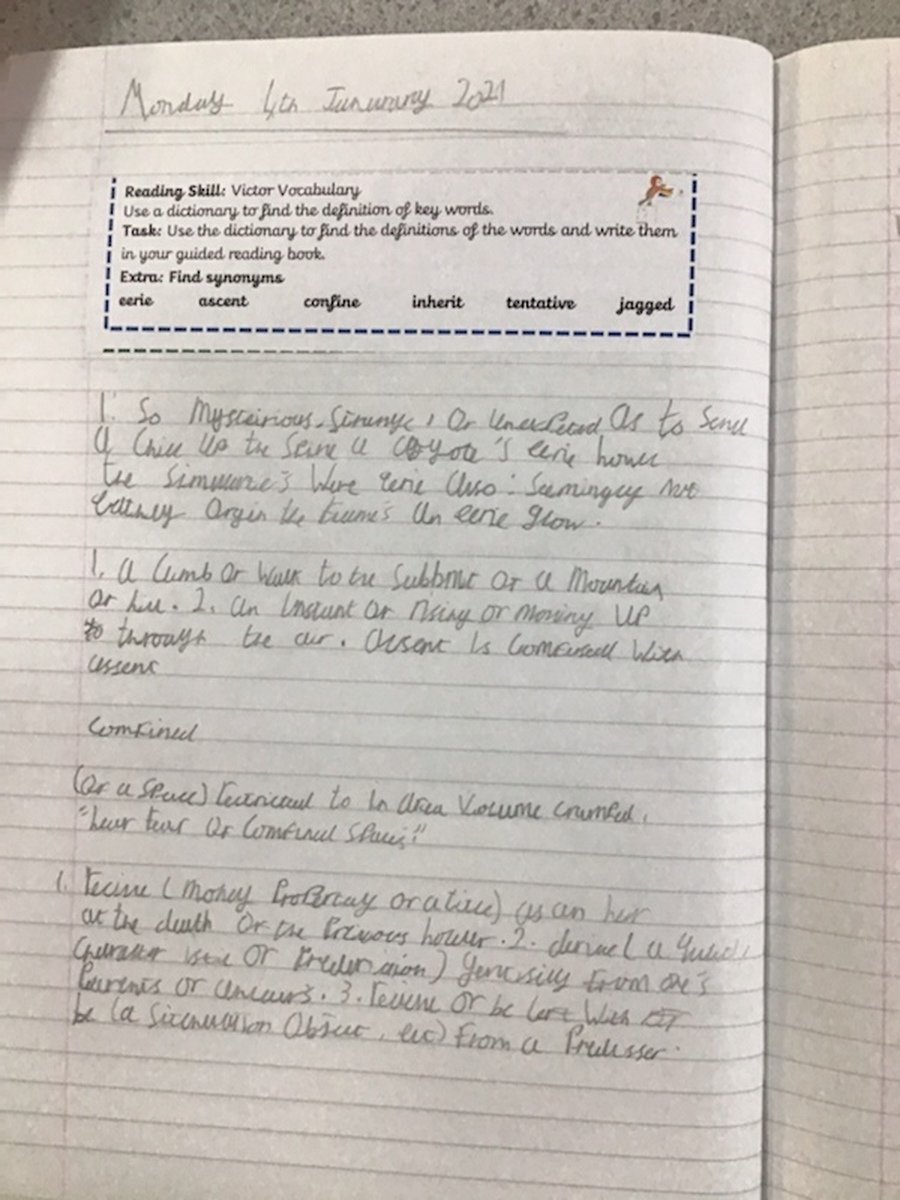 Monday 4th Janurary 2021
Reading Skill: Victor Vocabulary
Use a dictionary to find the definition of key words.
Task: Use the dictionary to find the definitions of the words and write them
in your guided reading book.
Extra: Find synonyms
eerie ascent confine inherit tentative jagged
1. So Mysteirious, Strange, Or Unexpected As to Send
a Chill Up the Spine a Coyote's eerie howl
the Were eerie Also: Seemingly Not
Orgin the an eerie glow.
1. a Climb Or Walk to the Or a Mountain
or hill. 2. an Instant Or rising Or moving UP
to through the air. Is Confused With
assent
Confined
(Or a Space) to In Area Volume cramped.
"her fear Of Confined Spaces"
1. (Money or a title) as an heir
at the death Or the Previous holder. 2. derive (a
character Or ) From one's
Parents Or 3. Or be Left With
be (a Object, etc) From a